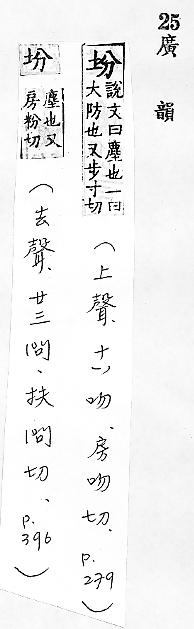 25 廣韻
坋
說文曰塵也一曰
大防也又步寸切
(上聲、十八吻、房吻切、p.279)
坋
塵也又
房粉切
(去聲、廿三問、扶問切、p.396)